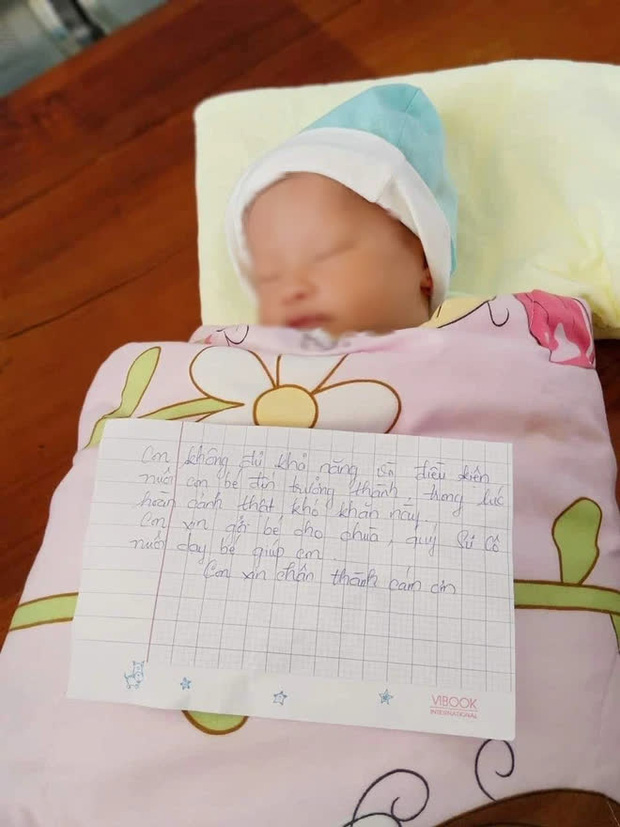 Con không đủ khả năng và điều kiện
nuôi con bé đến trưởng thành, trong lúc
hoàn cảnh thật khó khăn này.
Con xin gởi bé cho chùa, quý Sư cô
nuôi dạy bé giúp con.
Con xin chân thành cám ơn
VIBOOK
INTERNATIONAL